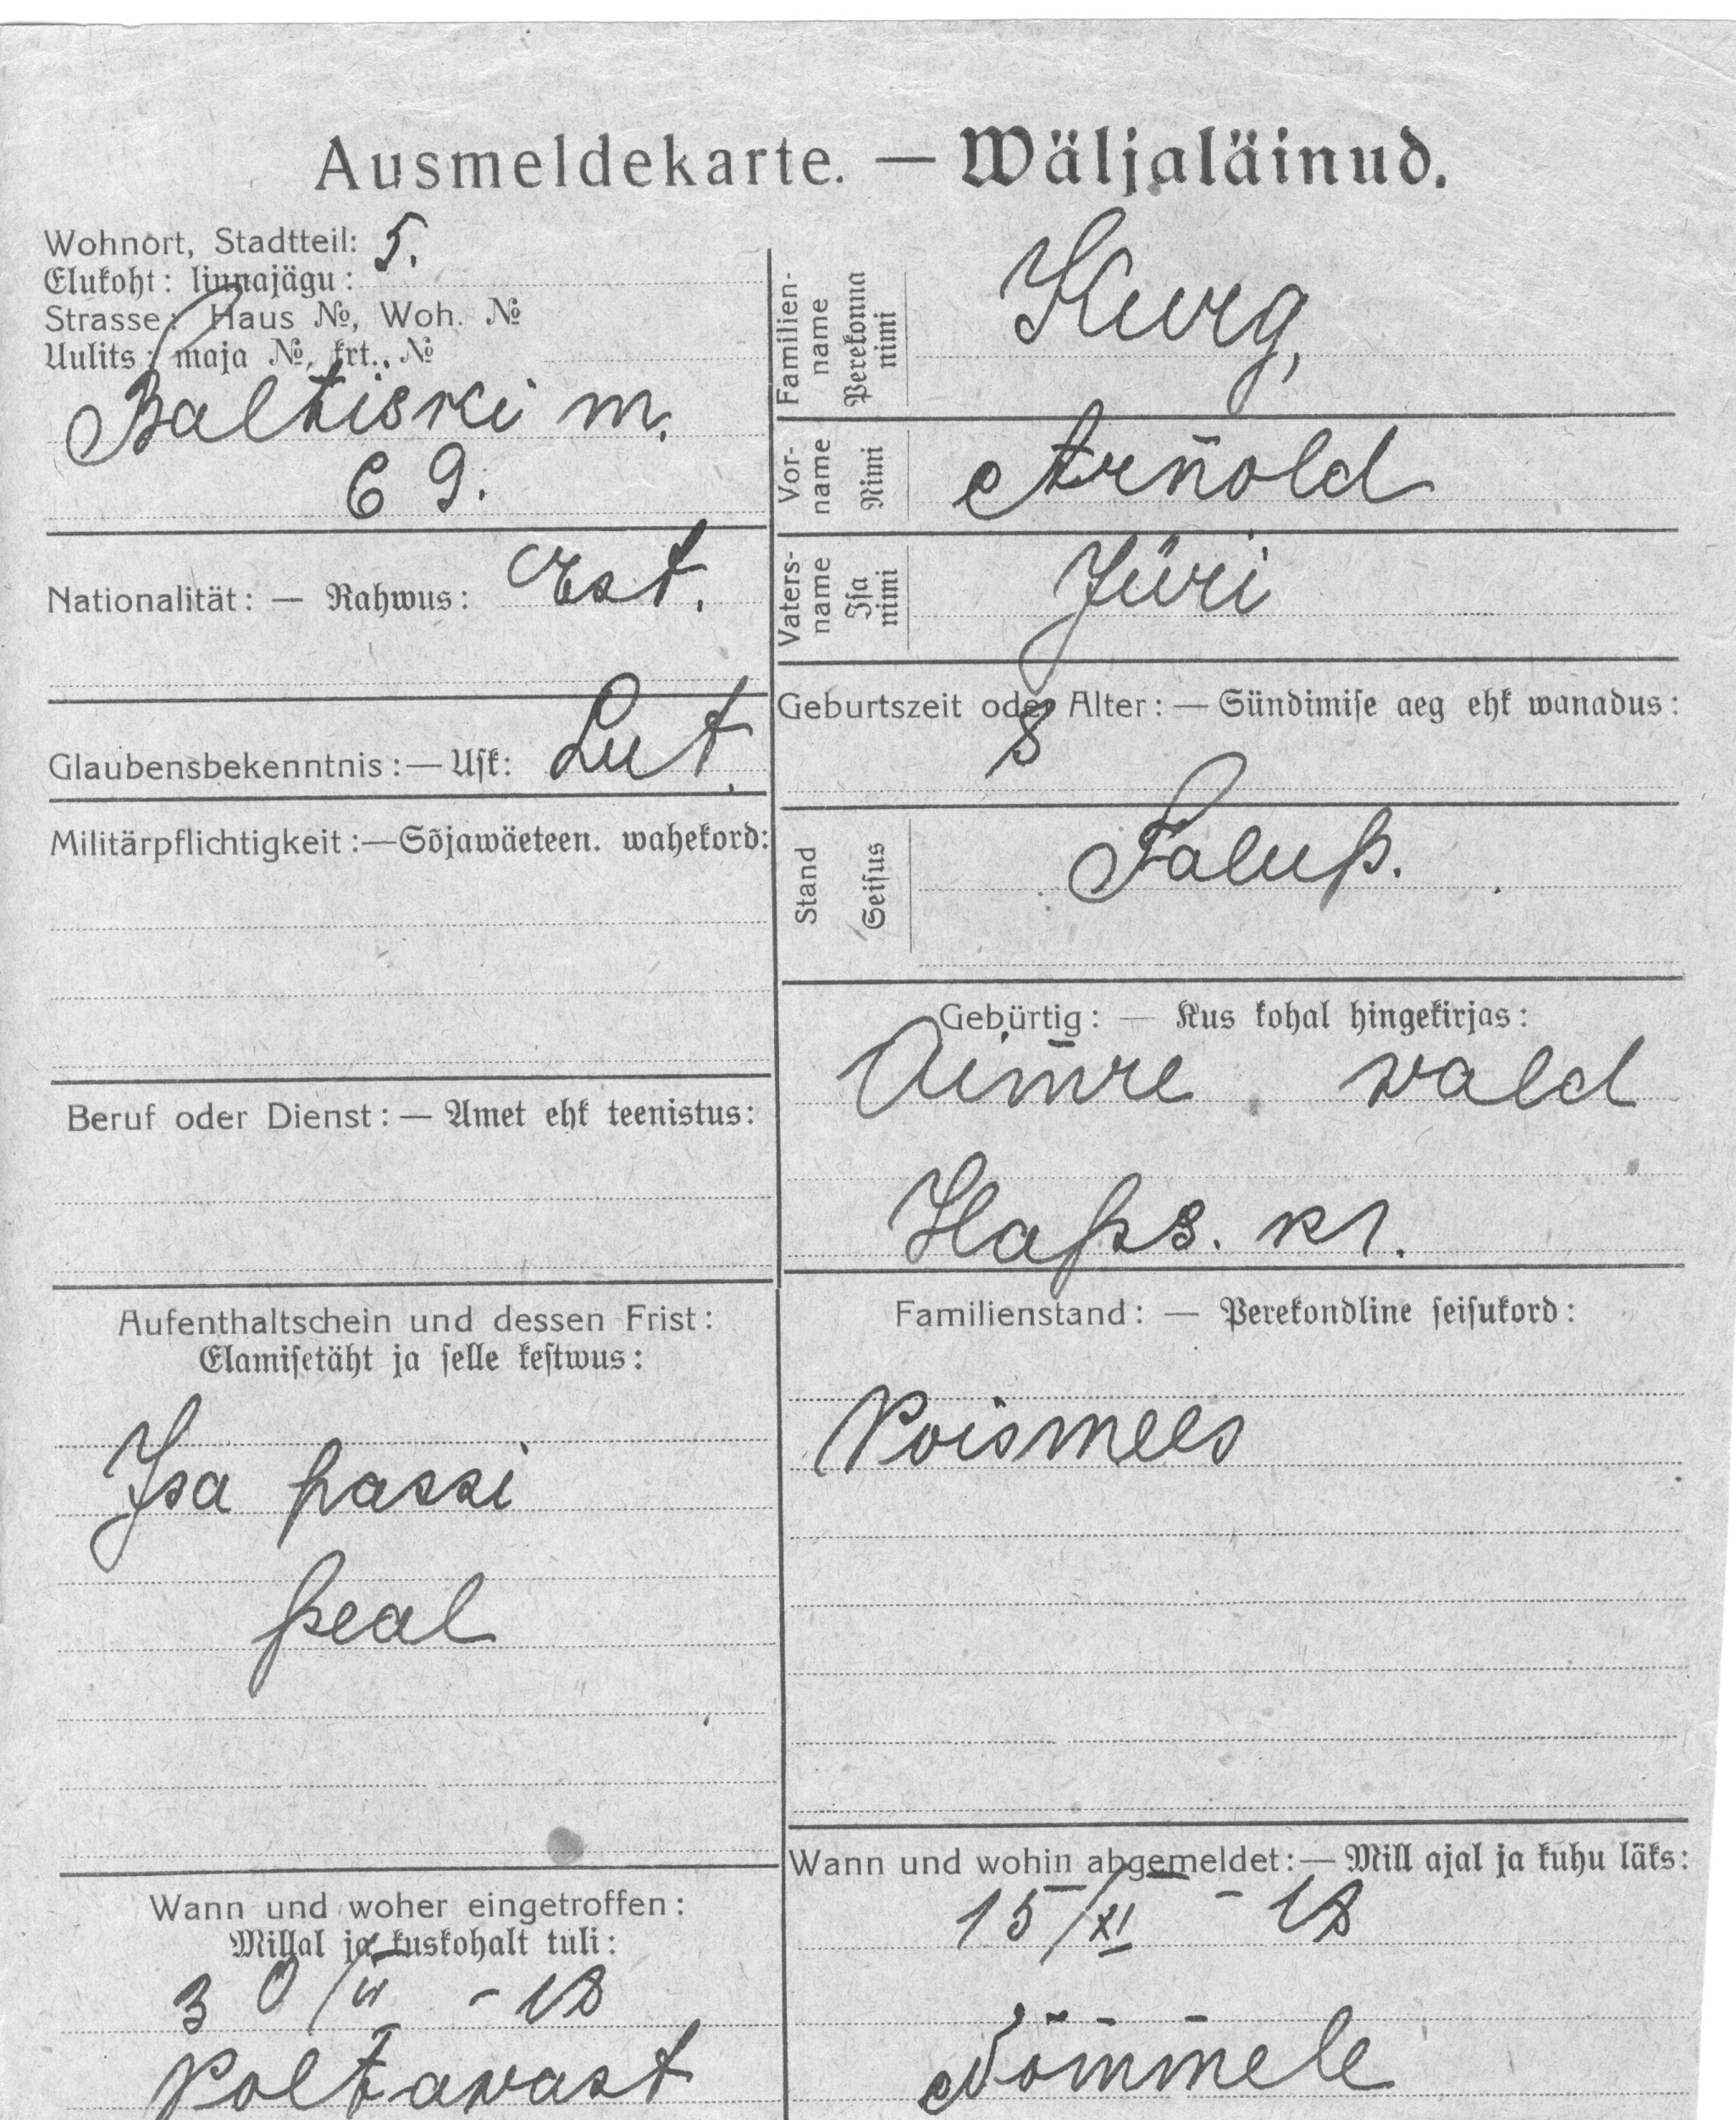 Ausmeldekarte. — Wäljaläinud.
Wohnort, Stadtteil: 5.
Elukoht: linnajägu:
Strasse: Haus №, Woh. №
Uulits: maja №, krt., №
Baltiski m.
69.
Nationalität: — Rahwus: Est.
Glaubensbekenntnis: — Usk: Lut.
Militärpflichtigkeit: — Sõjawäeteen. wahekord:
Beruf oder Dienst: — Amet ehk teenistus:
Aufenthaltschein und dessen Frist:
Elamisetäht ja selle kestwus:
Isa passi
peal
Wann und woher eingetroffen:
Millal ja kuskohalt tuli:
- 18
Poltawast
Familien-
name
Perekonna
nimi
Kurg,
Vor-
name
Nimi
Arnold
Vaters-
name
Isa
nimi
Jüri
Geburtszeit oder Alter: — Sündimise aeg ehk wanadus:
8
Stand
Seisus
Talup.
Gebürtig: — Kus kohal hingekirjas:
wald
Haps. kr.
Familienstand: — Perekondline seisukord:
Poismees
Wann und wohin abgemeldet: — Mill ajal ja kuhu läks:
15/XI - 18
Nõmmele